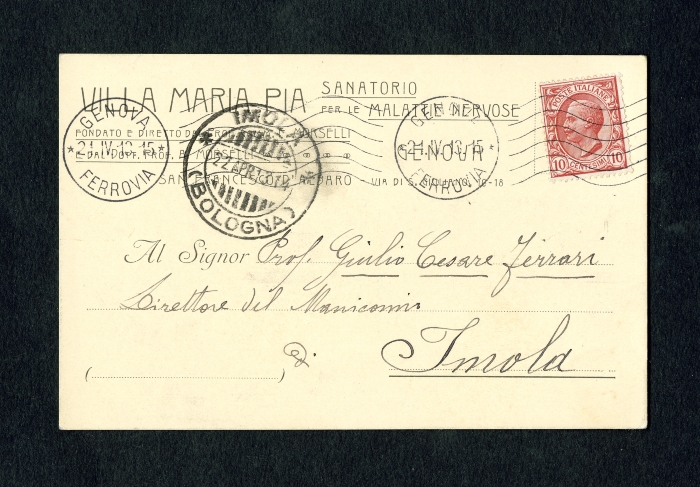 VILLA MARIA PIA
SANATORIO
PER LE MALATTIE NERVOSE
FONDATO E DIRETTO DAL PROF. MORSELLI
E DAL DOTT. MORSELLI
SAN FRANCESCO D'ALBARO VIA DI S. GIULIANO, 10-18
GENOVA
GENOVA
21.IV.13.15
FERROVIA
IMOLA
22 APR
(BOLOGNA)
GENOVA
21.IV.13.15
FERROVIA
POSTE ITALIANE
10 CENTESIMI 10
Al Signor Prof. Giulio Cesare Ferrari
Direttore del Manicomio di
Imola
( )